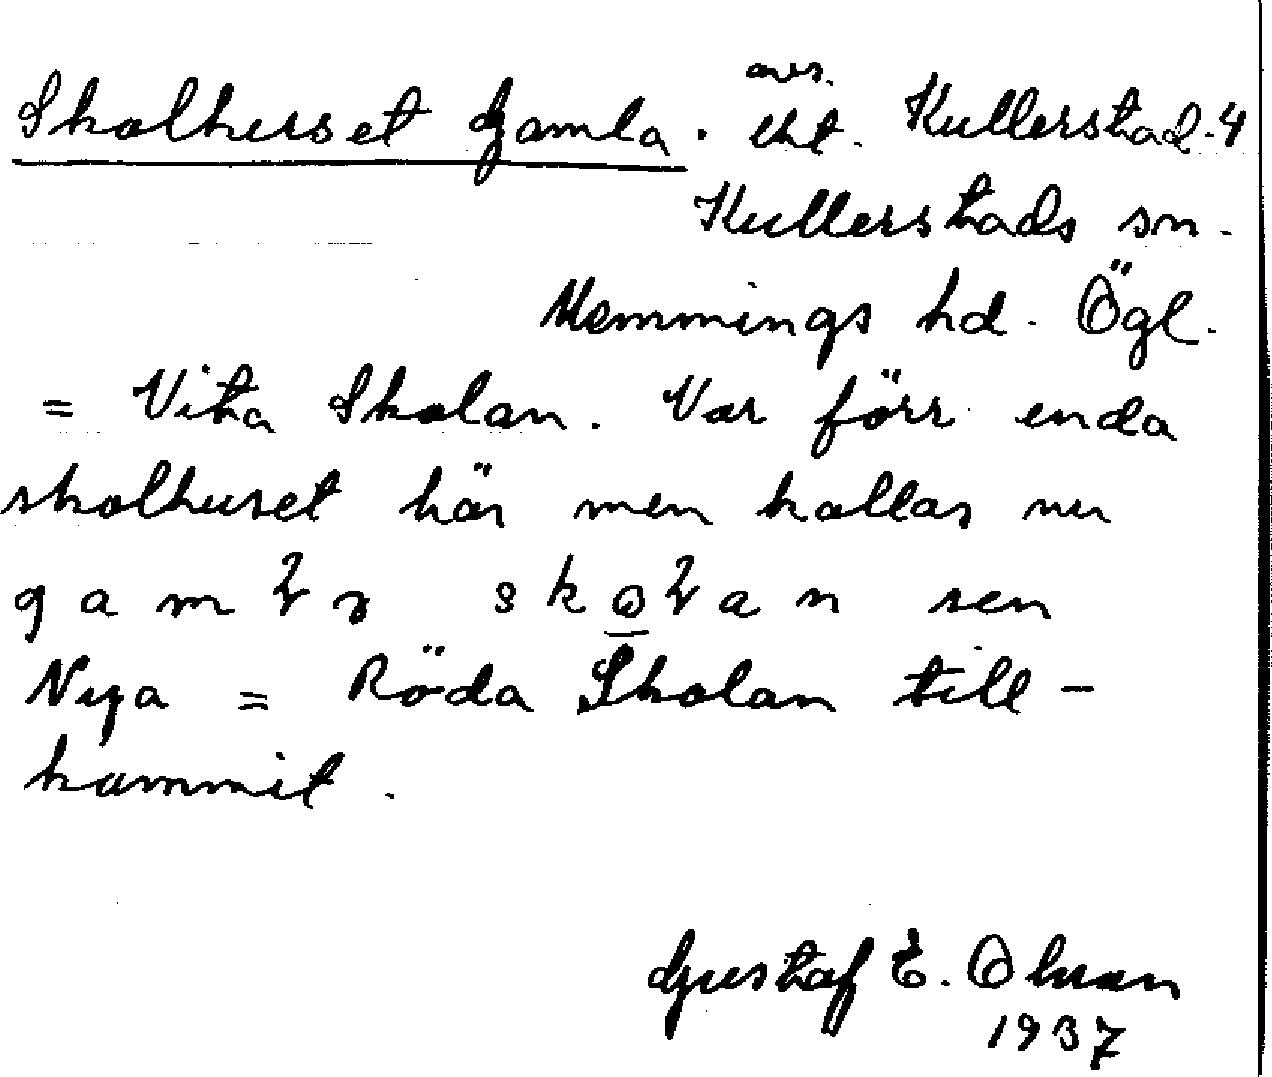 Skolhuset Gamla. avs. Kullerstad. 4
Kullerstads sn.
Memmings hd. Ögl.
= Vita Skolan. Var förr enda
skolhuset här men kallas nu
skolan sen
Nya = Röda Skolan till-
kommit.
Gustaf E. Olsson
1937